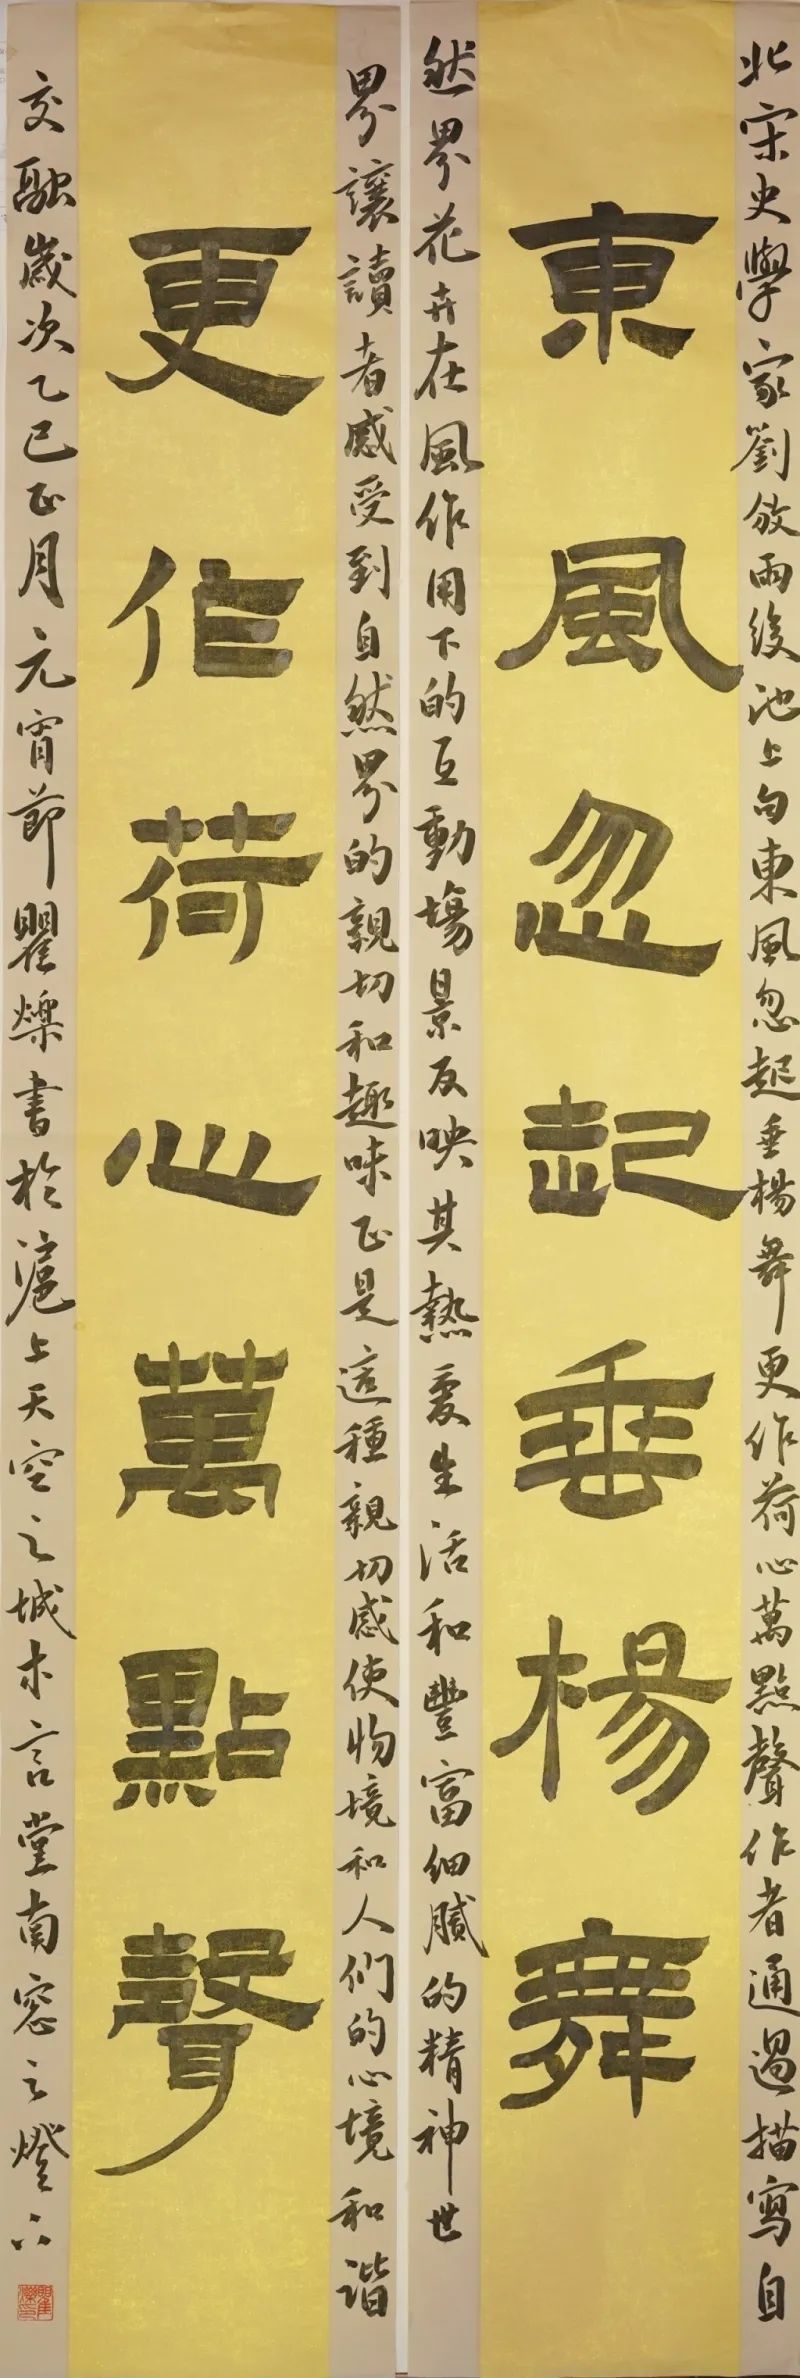 北宋史學家劉攽雨後池上句東風忽起垂楊舞更作荷心萬點聲作者通過描寫自
東風忽起垂楊舞
然界花卉在風作用下的互動場景反映其熱愛生活和豐富細膩的精神世
界讓讀者感受到自然界的親切和趣味正是這種親切感使物境和人們的心境和諧
更作荷心萬點聲
交融歲次乙巳正月元宵節瞿爍書於滬上天空之城木言堂南窓之燈下